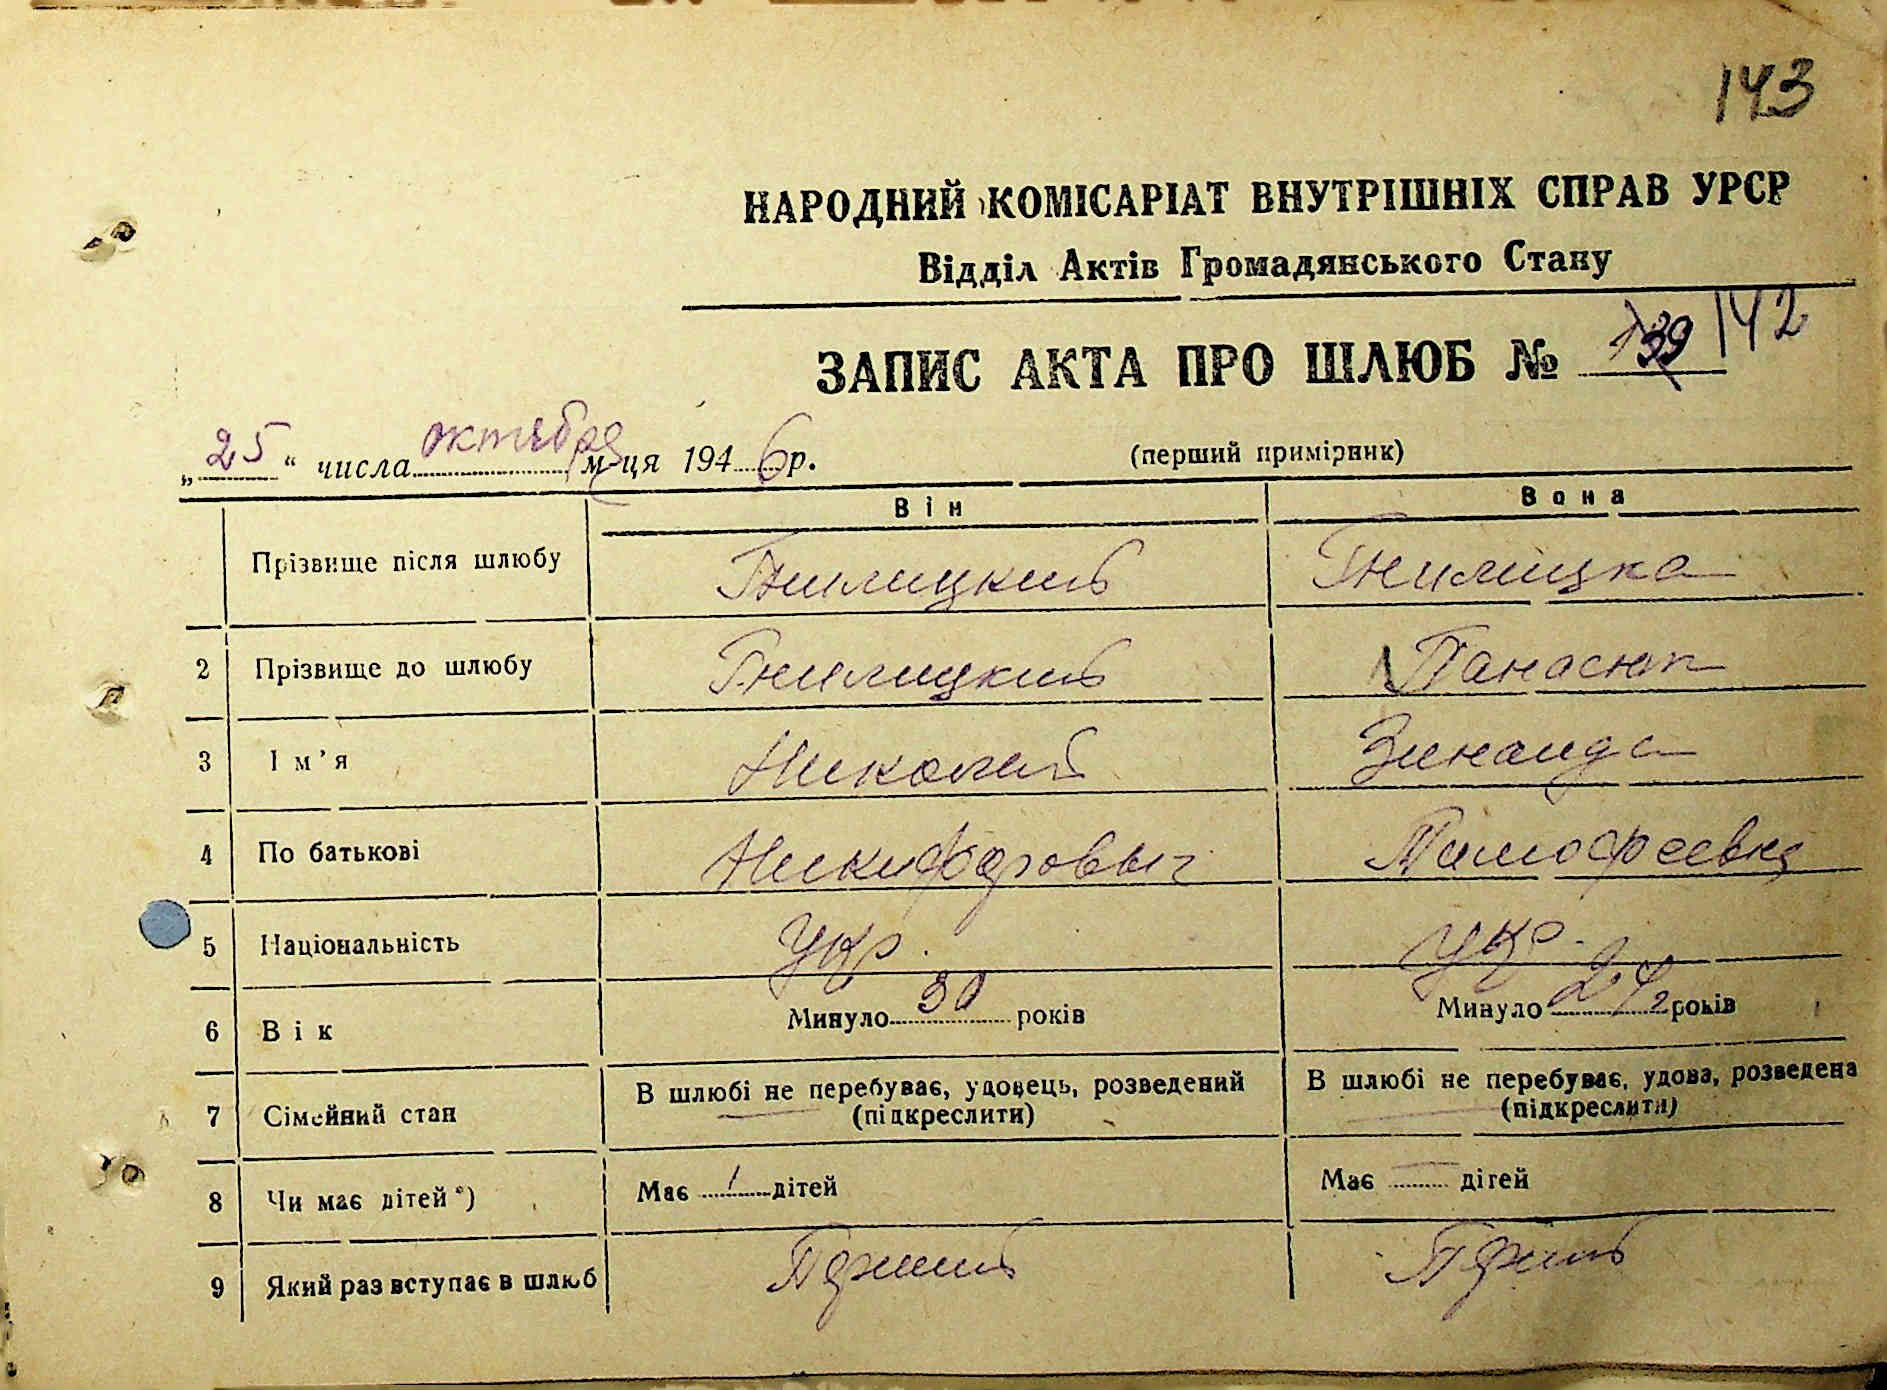 143
НАРОДНИЙ КОМІСАРІАТ ВНУТРІШНІХ СПРАВ УРСР
Відділ Актів Громадянського Стану
ЗАПИС АКТА ПРО ШЛЮБ № 139 142
„25“ числа октября м-ця 1946 р. (перший примірник)
Він Вона
Прізвище після шлюбу Гнилицкий Гнилицка
2 Прізвище до шлюбу Гнилицкий Панасюк
3 Ім'я Николай Зинаида
4 По батькові Никифорович Тимофеевна
5 Національність Укр. Укр.
6 Вік Минуло 30 років Минуло 24 років
7 Сімейний стан В шлюбі не перебуває, удовець, розведений В шлюбі не перебуває, удова, розведена
(підкреслити) (підкреслити)
8 Чи має дітей*) Має 1 дітей Має — дітей
9 Який раз вступає в шлюб Перший Перший